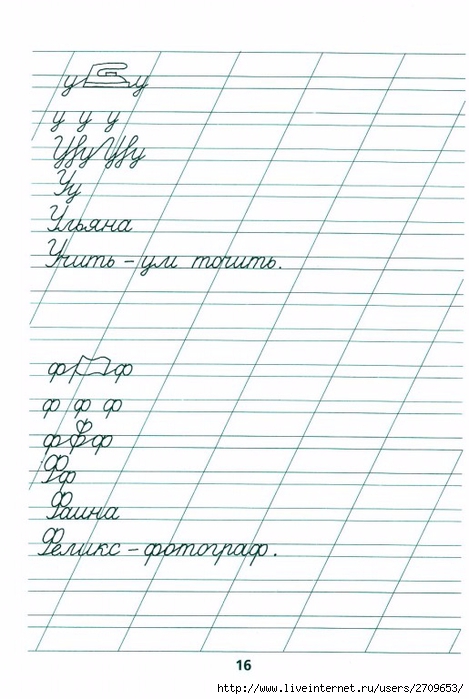 у у
у у у
УуУу
Уу
Ульяна
Учить – ум точить.
ф ф
ф ф ф
фФф
Фф
Фаина
Феликс – фотограф.
16
http://www.liveinternet.ru/users/2709653/